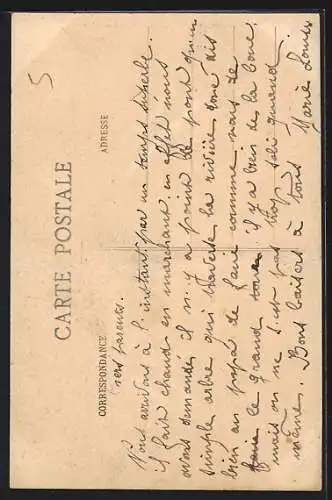 CARTE POSTALE
CORRESPONDANCE
ADRESSE
5
chers parents.
Nous arrivons à l'instant par un temps superbe.
Il fait chaud en marchant en effet nous
avons demandés il n'y a point de pont qu'un
simple arbre qui traverse la rivière donc dis
bien au papa de faire comme nous de
faire le grand tour il y a bien de la boue.
mais on ne s'est pas trop sali quand
même. Bons baisers à tous Marie Louise